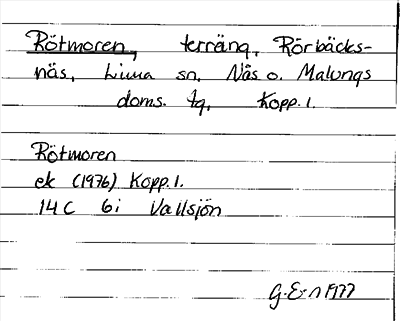 Rötmoren, terräng, Rörbäcks-
näs, Lima sn, Nås o. Malungs
doms. tg, Kopp. l.
Rötmoren
ek (1976) Kopp. l.
14 C 6i Vallsjön
G.E-n 1977